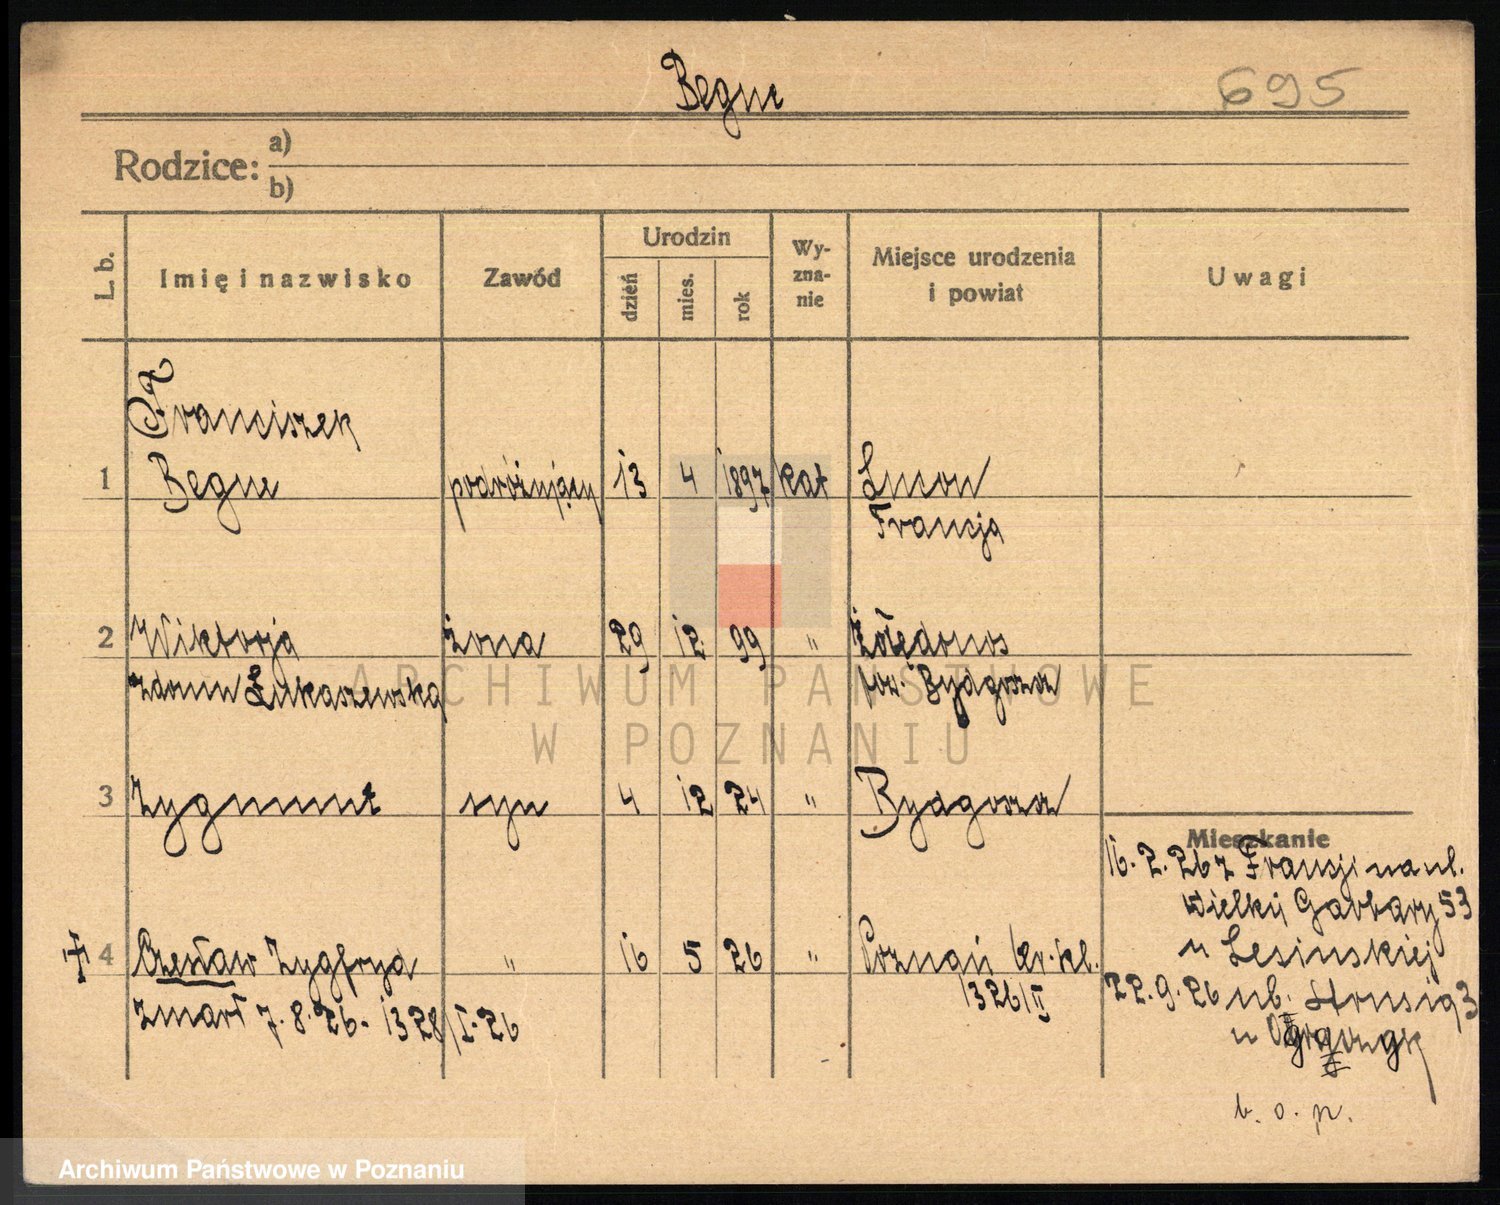 Begue
695
Rodzice: a)
b)
L. b.
Imię i nazwisko
Zawód
Urodzin
dzień
mies.
rok
Wy-
zna-
nie
Miejsce urodzenia
i powiat
Uwagi
Franciszek
1 Begue podróżujący 13 4 1897 kat
Francja
2 Wiktorja żona 29 12 99 " Żołędowos
zdomu Łukaszewska pow. Bydgoszcz
ARCHIWUM PAŃSTWOWE
W POZNANIU
3 Zygmunt syn 4 12 24 " Bydgoszcz
Mieszkanie
16. 2. 26 z Francji na ul.
Wielkie Garbary 53
u Lesinskiej
4 Czesław Zygfryd " 16 5 26 " Poznań
1326/II
zmarł 7. 8. 26. 1328/I. 26
22. 9. 26 ul. Strusia 3
u
b. o. p.
Archiwum Państwowe w Poznaniu